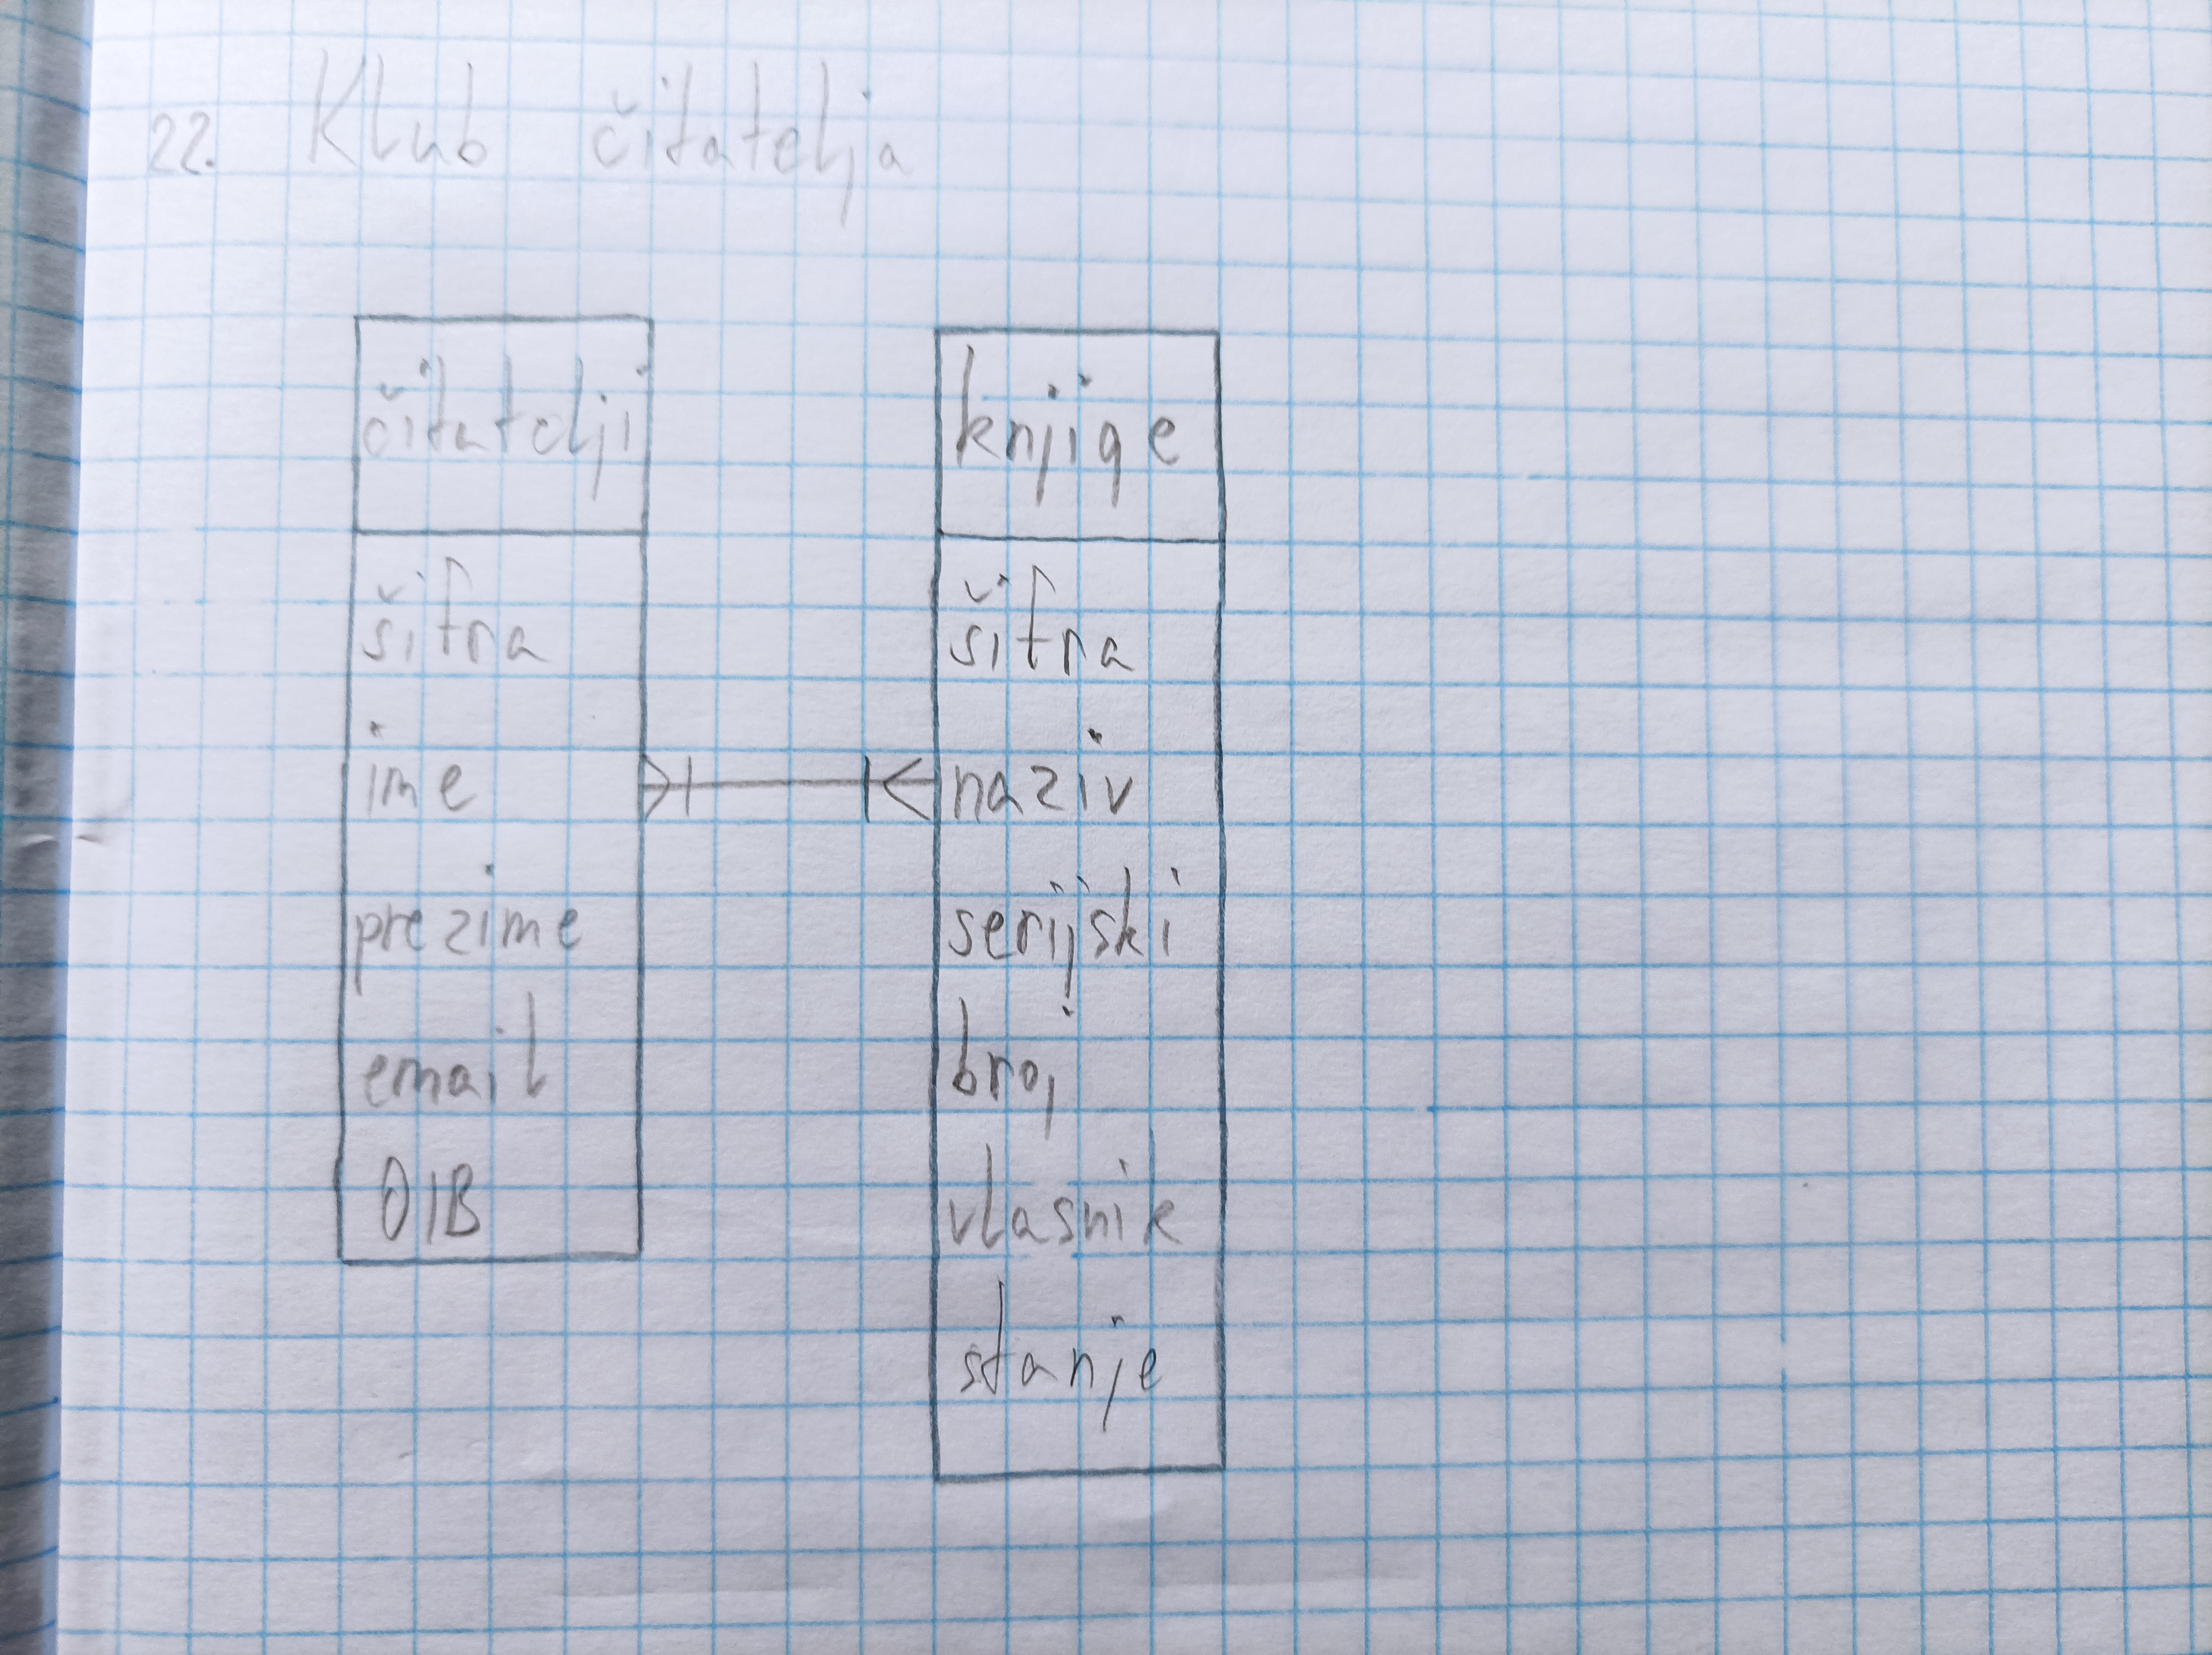 22. Klub čitatelja
čitatelji
šifra
ime
prezime
email
OIB
knjige
šifra
naziv
serijski
broj
vlasnik
stanje